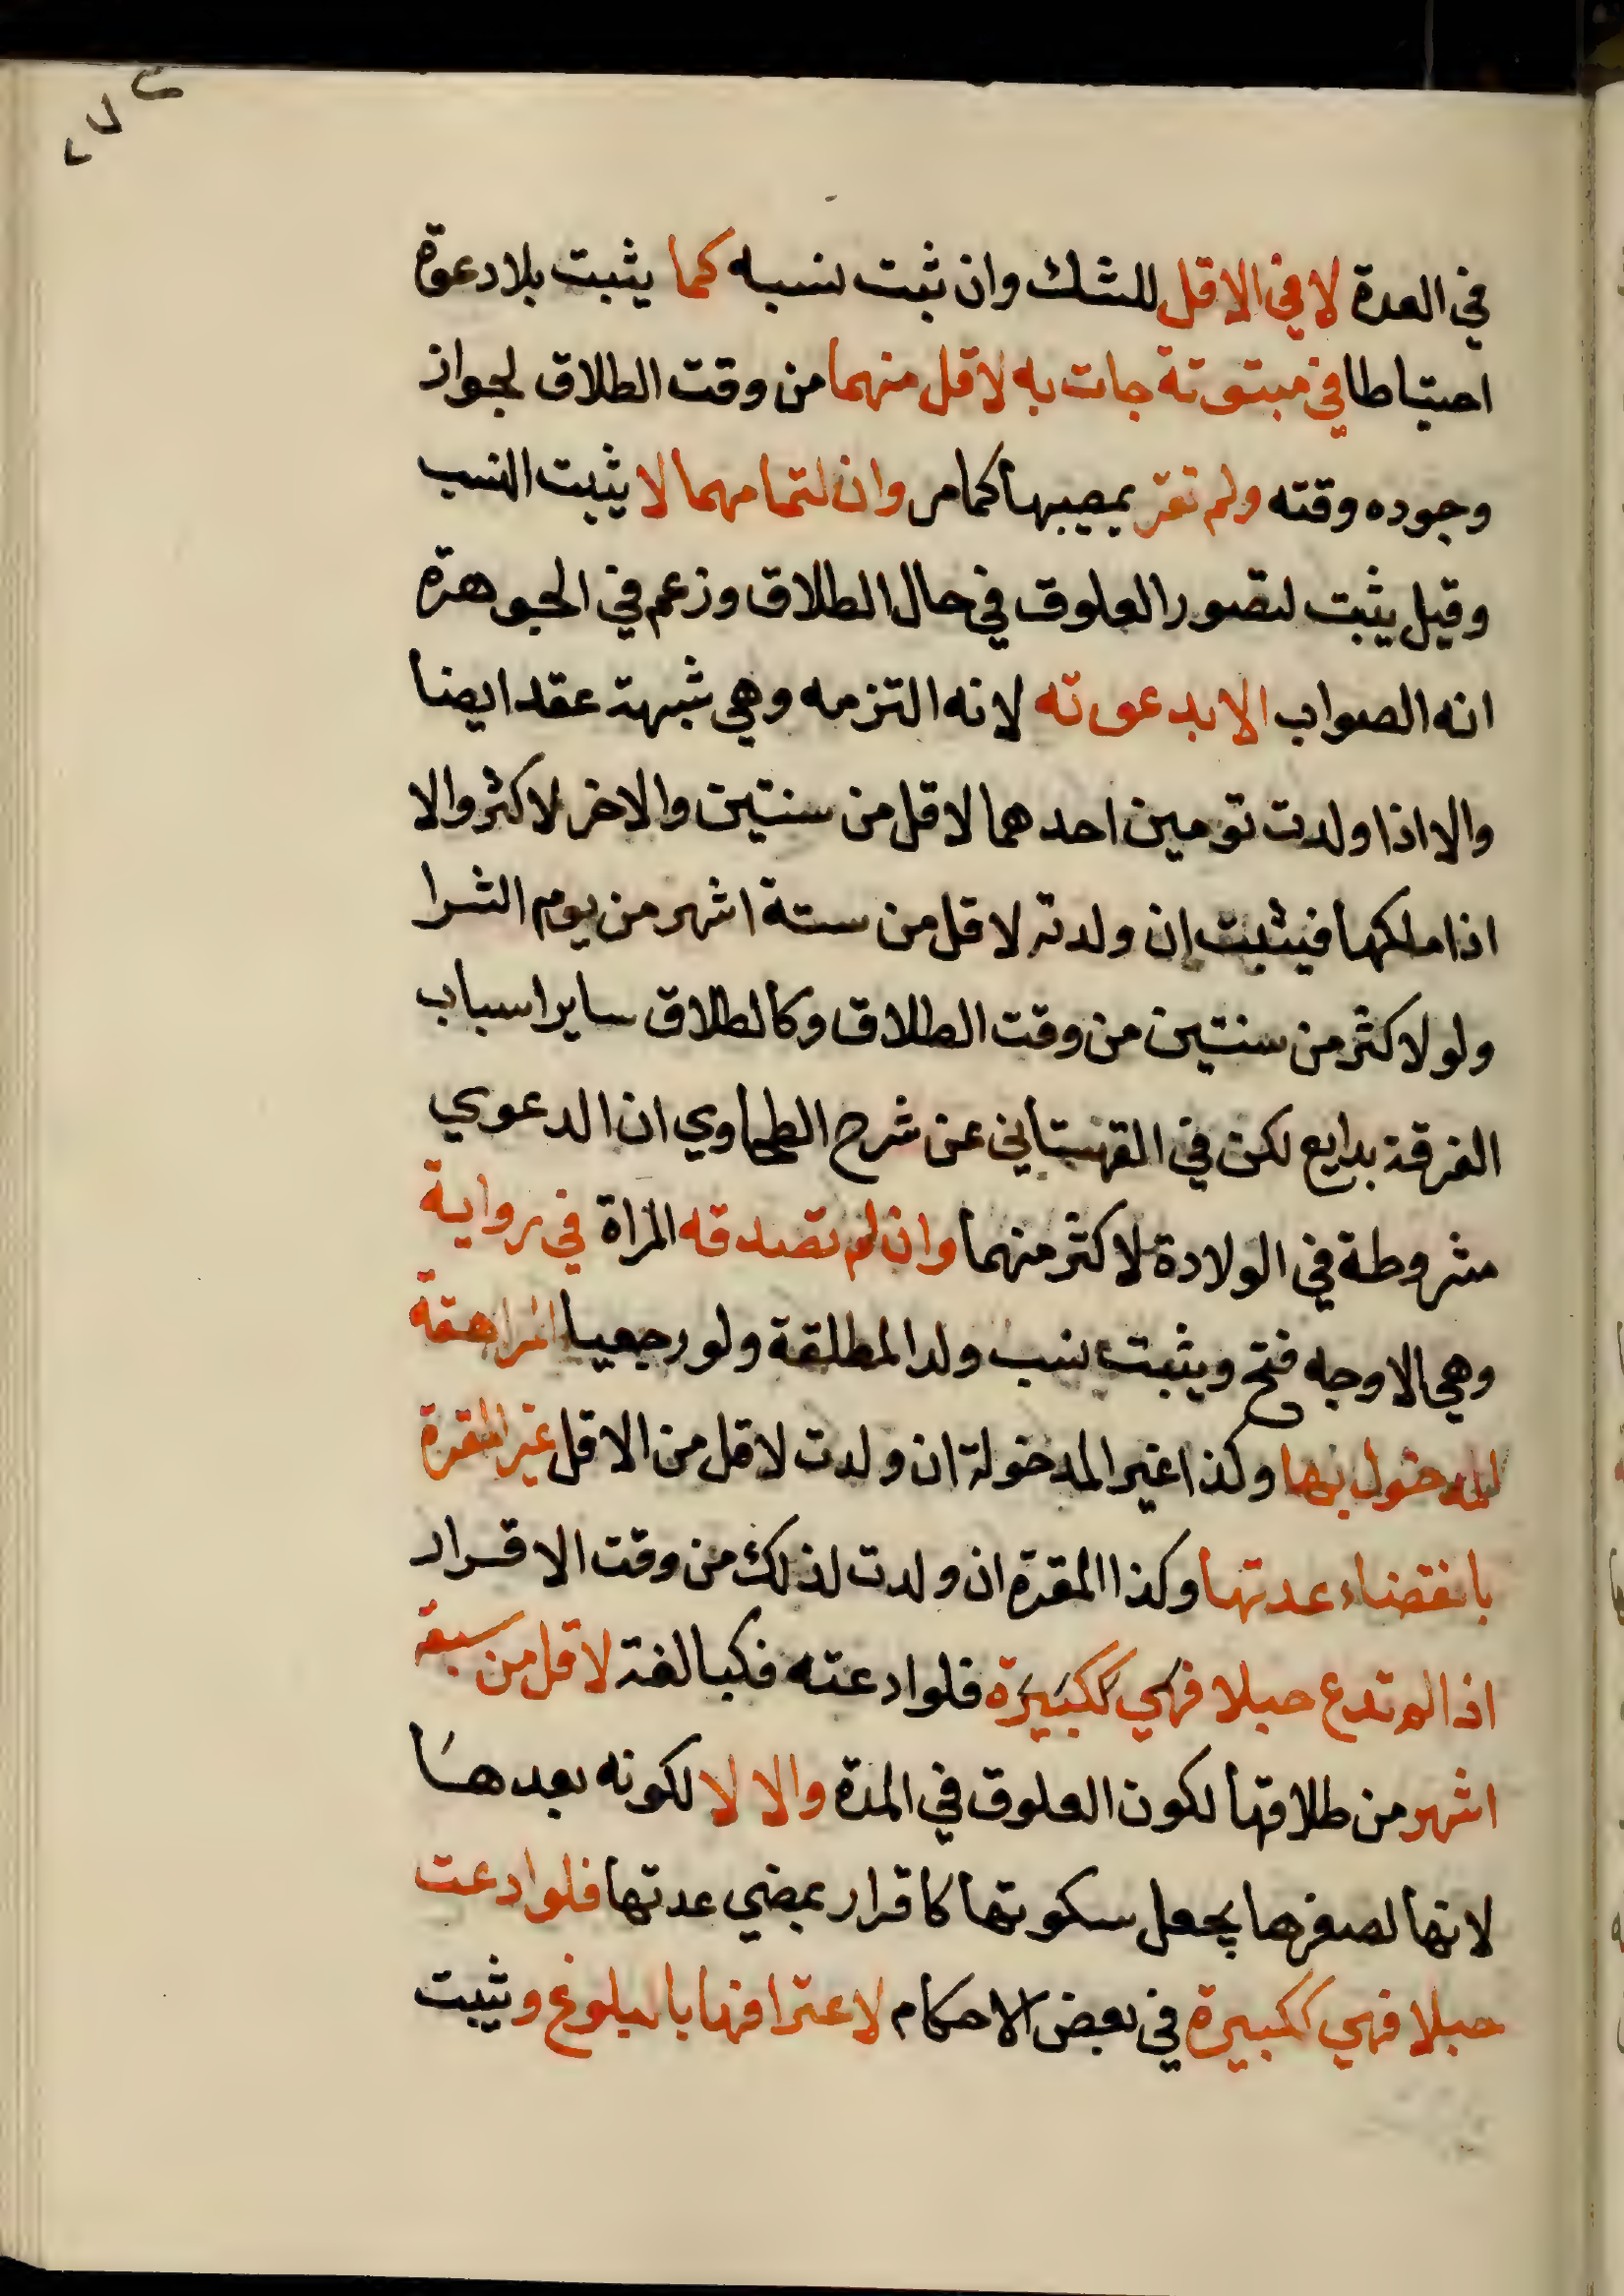 في العدة لا في الاقل للشك وان ثبت نسبه كما يثبت بلا دعوة
احتياطا في مبتوتة جات به لاقل منهما من وقت الطلاق لجواز
وجوده وقته ولم تقر بمضيها كما مر وان لتمامهما لا يثبت النسب
وقيل يثبت لتصور العلوق في حال الطلاق وزعم في الجوهرة
انه الصواب الا بدعوته لانه التزمه وهي شبهة عقد ايضا
والا اذا ولدت تومين احدهما لاقل من سنتين والاخر لاكثر والا
اذا ملكها فيثبت إن ولدته لاقل من ستة اشهر من يوم الشرا
ولو لاكثر من سنتين من وقت الطلاق وكالطلاق ساير اسباب
الفرقة بدايع لكن في القهستاني عن شرح الطحاوي ان الدعوي
مشروطة في الولادة لاكثر منهما وان لم تصدقه المراة في رواية
وهي الاوجه فتح ويثبت نسب ولد المطلقة ولو رجعيا المراهقة
المدخول بها وكذا غير المدخولة ان ولدت لاقل من الاقل غير المقرة
بانقضاء عدتها وكذا المقرة ان ولدت لذلك من وقت الاقرار
اذا لم تدع حبلا فهي ككبيرة فلو ادعته فكبالغة لاقل من تسعة
اشهر من طلاقها لكون العلوق في المدة والا لا لكونه بعدها
لانها لصغرها يجعل سكوتها كاقرار بمضي عدتها فلو ادعت
حبلا فهي ككبيرة في بعض الاحكام لاعترافها بالبلوغ ويثبت